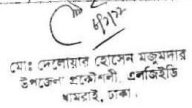 মোঃ দেলোয়ার হোসেন মজুমদার
উপজেলা প্রকৌশলী, এলজিইডি
ধামরাই, ঢাকা।